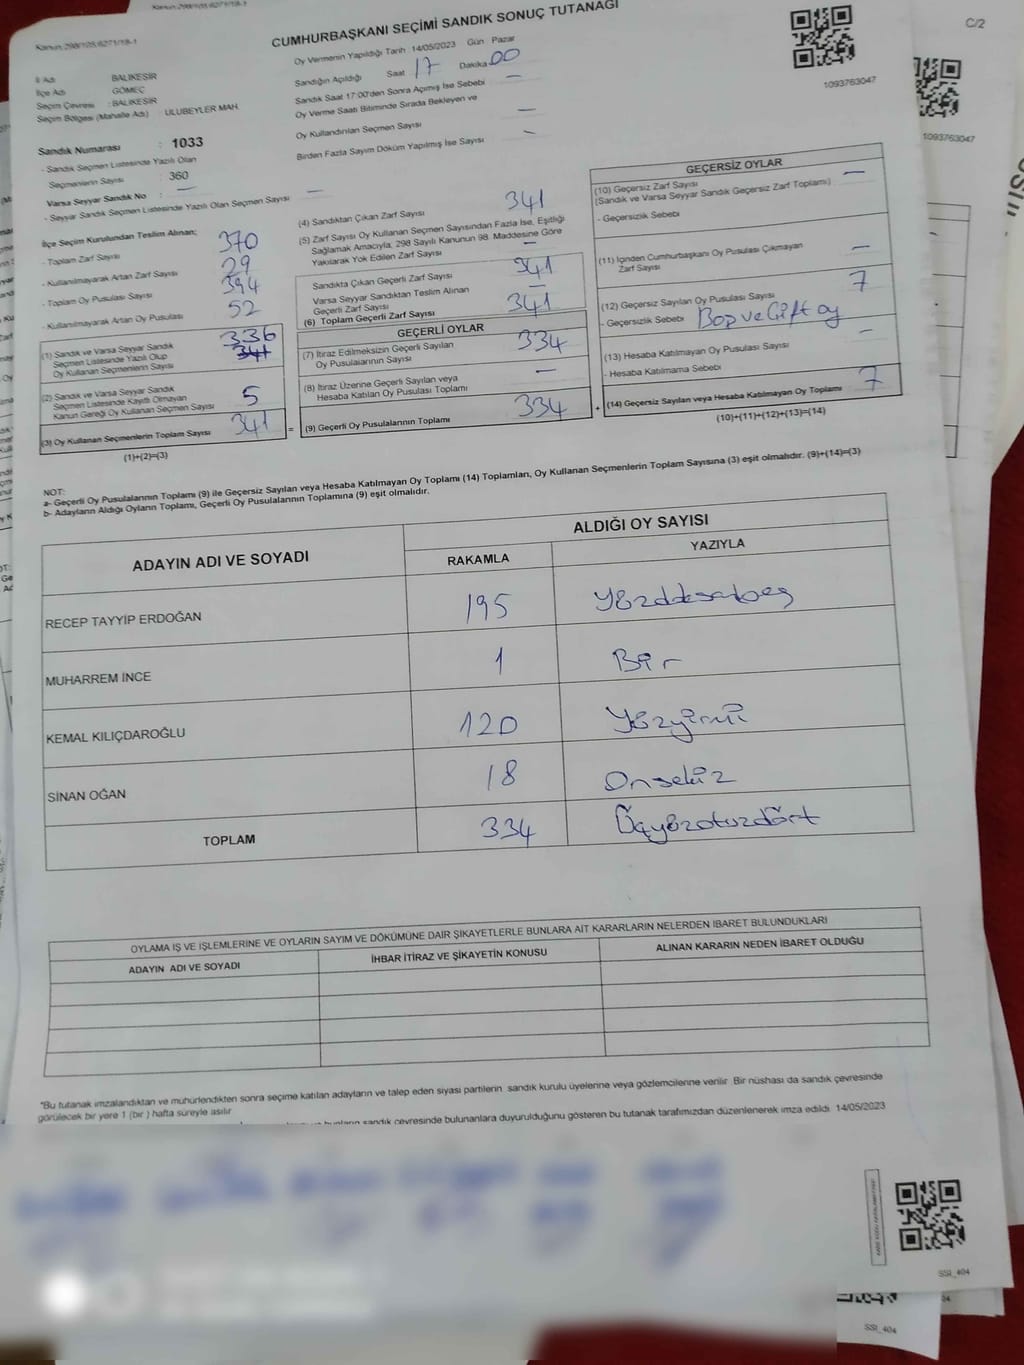 Kanun:298/105,6271/19-1
C/2
CUMHURBAŞKANI SEÇİMİ SANDIK SONUÇ TUTANAĞI
İl Adı BALIKESİR
İlçe Adı GÖMEÇ
Seçim Çevresi : BALIKESİR
Seçim Bölgesi (Mahalle Adı) : ULUBEYLER MAH.
Oy Vermenin Yapıldığı Tarih 14/05/2023 Gün Pazar
Sandığın Açıldığı Saat 17 Dakika 00
Sandık Saat 17:00'den Sonra Açımış İse Sebebi —
Oy Verme Saati Bitiminde Sırada Bekleyen ve
Oy Kullandırılan Seçmen Sayısı —
Birden Fazla Sayım Döküm Yapılmış İse Sayısı —
1093763047
1093763047
Sandık Numarası : 1033
- Sandık Seçmen Listesinde Yazılı Olan
Seçmenlerin Sayısı : 360
Varsa Seyyar Sandık No : —
- Seyyar Sandık Seçmen Listesinde Yazılı Olan Seçmen Sayısı —
İlçe Seçim Kurulundan Teslim Alınan;
- Toplam Zarf Sayısı 370
- Kullanılmayarak Artan Zarf Sayısı 29
- Toplam Oy Pusulası Sayısı 394
- Kullanılmayarak Artan Oy Pusulası 52
(1) Sandık ve Varsa Seyyar Sandık
Seçmen Listesinde Yazılı Olup
Oy Kullanan Seçmenlerin Sayısı
336
341
(2) Sandık ve Varsa Seyyar Sandık
Seçmen Listesinde Kayıtlı Olmayan
Kanun Gereği Oy Kullanan Seçmen Sayısı 5
(3) Oy Kullanan Seçmenlerin Toplam Sayısı 341
(1)+(2)=(3)
(4) Sandıktan Çıkan Zarf Sayısı 341
(5) Zarf Sayısı Oy Kullanan Seçmen Sayısından Fazla İse, Eşitliği
Sağlamak Amacıyla, 298 Sayılı Kanunun 98. Maddesine Göre
Yakılarak Yok Edilen Zarf Sayısı —
Sandıkta Çıkan Geçerli Zarf Sayısı 341
Varsa Seyyar Sandıktan Teslim Alınan
Geçerli Zarf Sayısı —
(6) Toplam Geçerli Zarf Sayısı 341
GEÇERLİ OYLAR
(7) İtiraz Edilmeksizin Geçerli Sayılan
Oy Pusulalarının Sayısı 334
(8) İtiraz Üzerine Geçerli Sayılan veya
Hesaba Katılan Oy Pusulası Toplamı —
= (9) Geçerli Oy Pusulalarının Toplamı 334 +
GEÇERSİZ OYLAR
(10) Geçersiz Zarf Sayısı —
(Sandık ve Varsa Seyyar Sandık Geçersiz Zarf Toplamı)
- Geçersizlik Sebebi
(11) İçinden Cumhurbaşkanı Oy Pusulası Çıkmayan
Zarf Sayısı —
(12) Geçersiz Sayılan Oy Pusulası Sayısı 7
- Geçersizlik Sebebi Boş ve Çift oy
(13) Hesaba Katılmayan Oy Pusulası Sayısı —
- Hesaba Katılmama Sebebi
(14) Geçersiz Sayılan veya Hesaba Katılmayan Oy Toplamı 7
(10)+(11)+(12)+(13)=(14)
NOT:
a- Geçerli Oy Pusulalarının Toplamı (9) ile Geçersiz Sayılan veya Hesaba Katılmayan Oy Toplamı (14) Toplamları, Oy Kullanan Seçmenlerin Toplam Sayısına (3) eşit olmalıdır. (9)+(14)=(3)
b- Adayların Aldığı Oyların Toplamı, Geçerli Oy Pusulalarının Toplamına (9) eşit olmalıdır.
ADAYIN ADI VE SOYADI
ALDIĞI OY SAYISI
RAKAMLA YAZIYLA
RECEP TAYYİP ERDOĞAN 195
MUHARREM İNCE 1 Bir
KEMAL KILIÇDAROĞLU 120 Yüzyirmi
SİNAN OĞAN 18 Onsekiz
TOPLAM 334 Üçyüzotuzdört
OYLAMA İŞ VE İŞLEMLERİNE VE OYLARIN SAYIM VE DÖKÜMÜNE DAİR ŞİKAYETLERLE BUNLARA AİT KARARLARIN NELERDEN İBARET BULUNDUKLARI
ADAYIN ADI VE SOYADI İHBAR İTİRAZ VE ŞİKAYETİN KONUSU ALINAN KARARIN NEDEN İBARET OLDUĞU
"Bu tutanak imzalandıktan ve mühürlendikten sonra seçime katılan adayların ve talep eden siyasi partilerin sandık kurulu üyelerine veya gözlemcilerine verilir. Bir nüshası da sandık çevresinde
görülecek bir yere 1 (bir ) hafta süreyle asılır
sandık çevresinde bulunanlara duyurulduğunu gösteren bu tutanak tarafımızdan düzenlenerek imza edildi. 14/05/2023
SSI_404
SSI_404